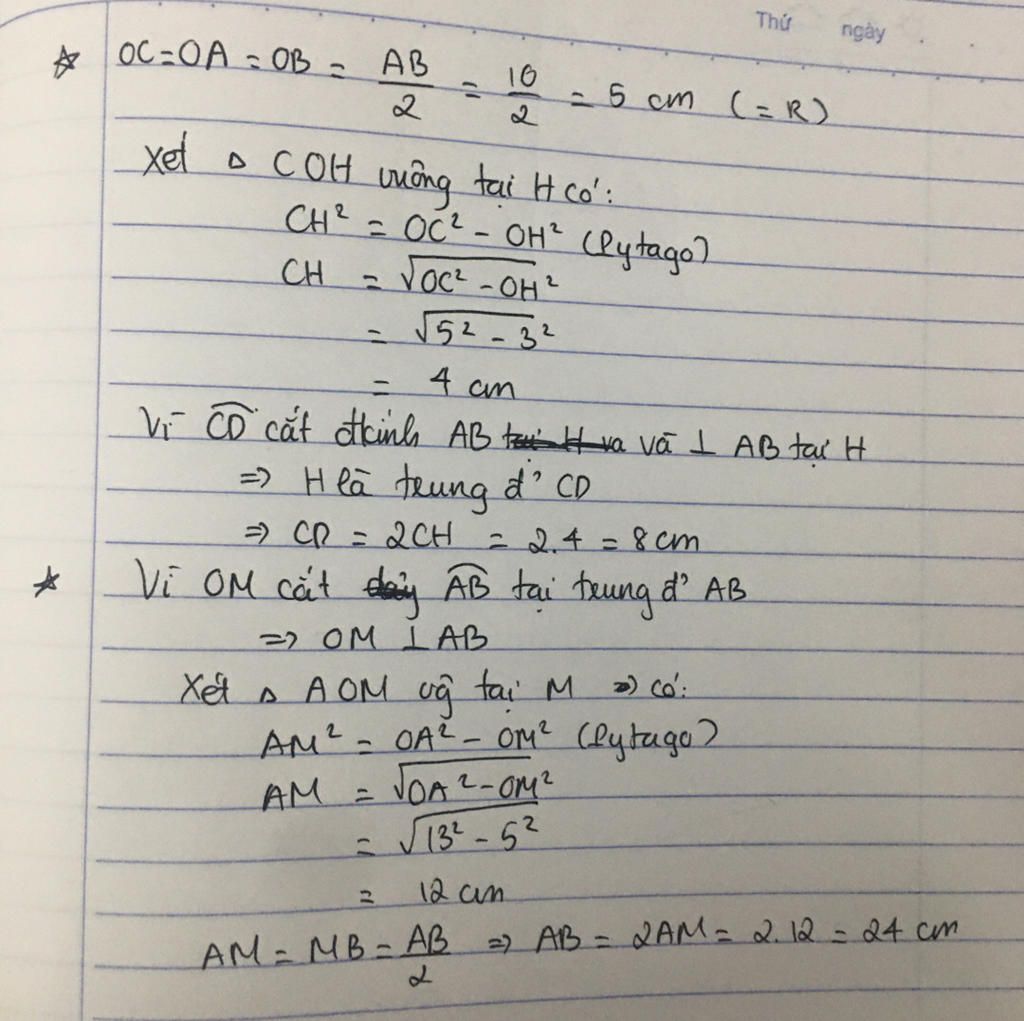 Thứ ngày
☆ OC=OA = OB = AB/2 = 10/2 = 5 cm (= R)
Xét △ COH vuông tại H có:
CH² = OC² - OH² (Pytago)
CH = √OC² - OH²
= √5² - 3²
= 4 cm
Vì CD cắt đkính AB và ⊥ AB tại H
=> H là trung đ' CD
=> CD = 2CH = 2.4 = 8cm
☆ Vì OM cắt AB tại trung đ' AB
=> OM ⊥ AB
Xét △ AOM vg̃ tại M => có:
AM² = OA² - OM² (Pytago)
AM = √OA² - OM²
= √13² - 5²
= 12 cm
AM = MB = AB/2 => AB = 2AM = 2.12 = 24 cm